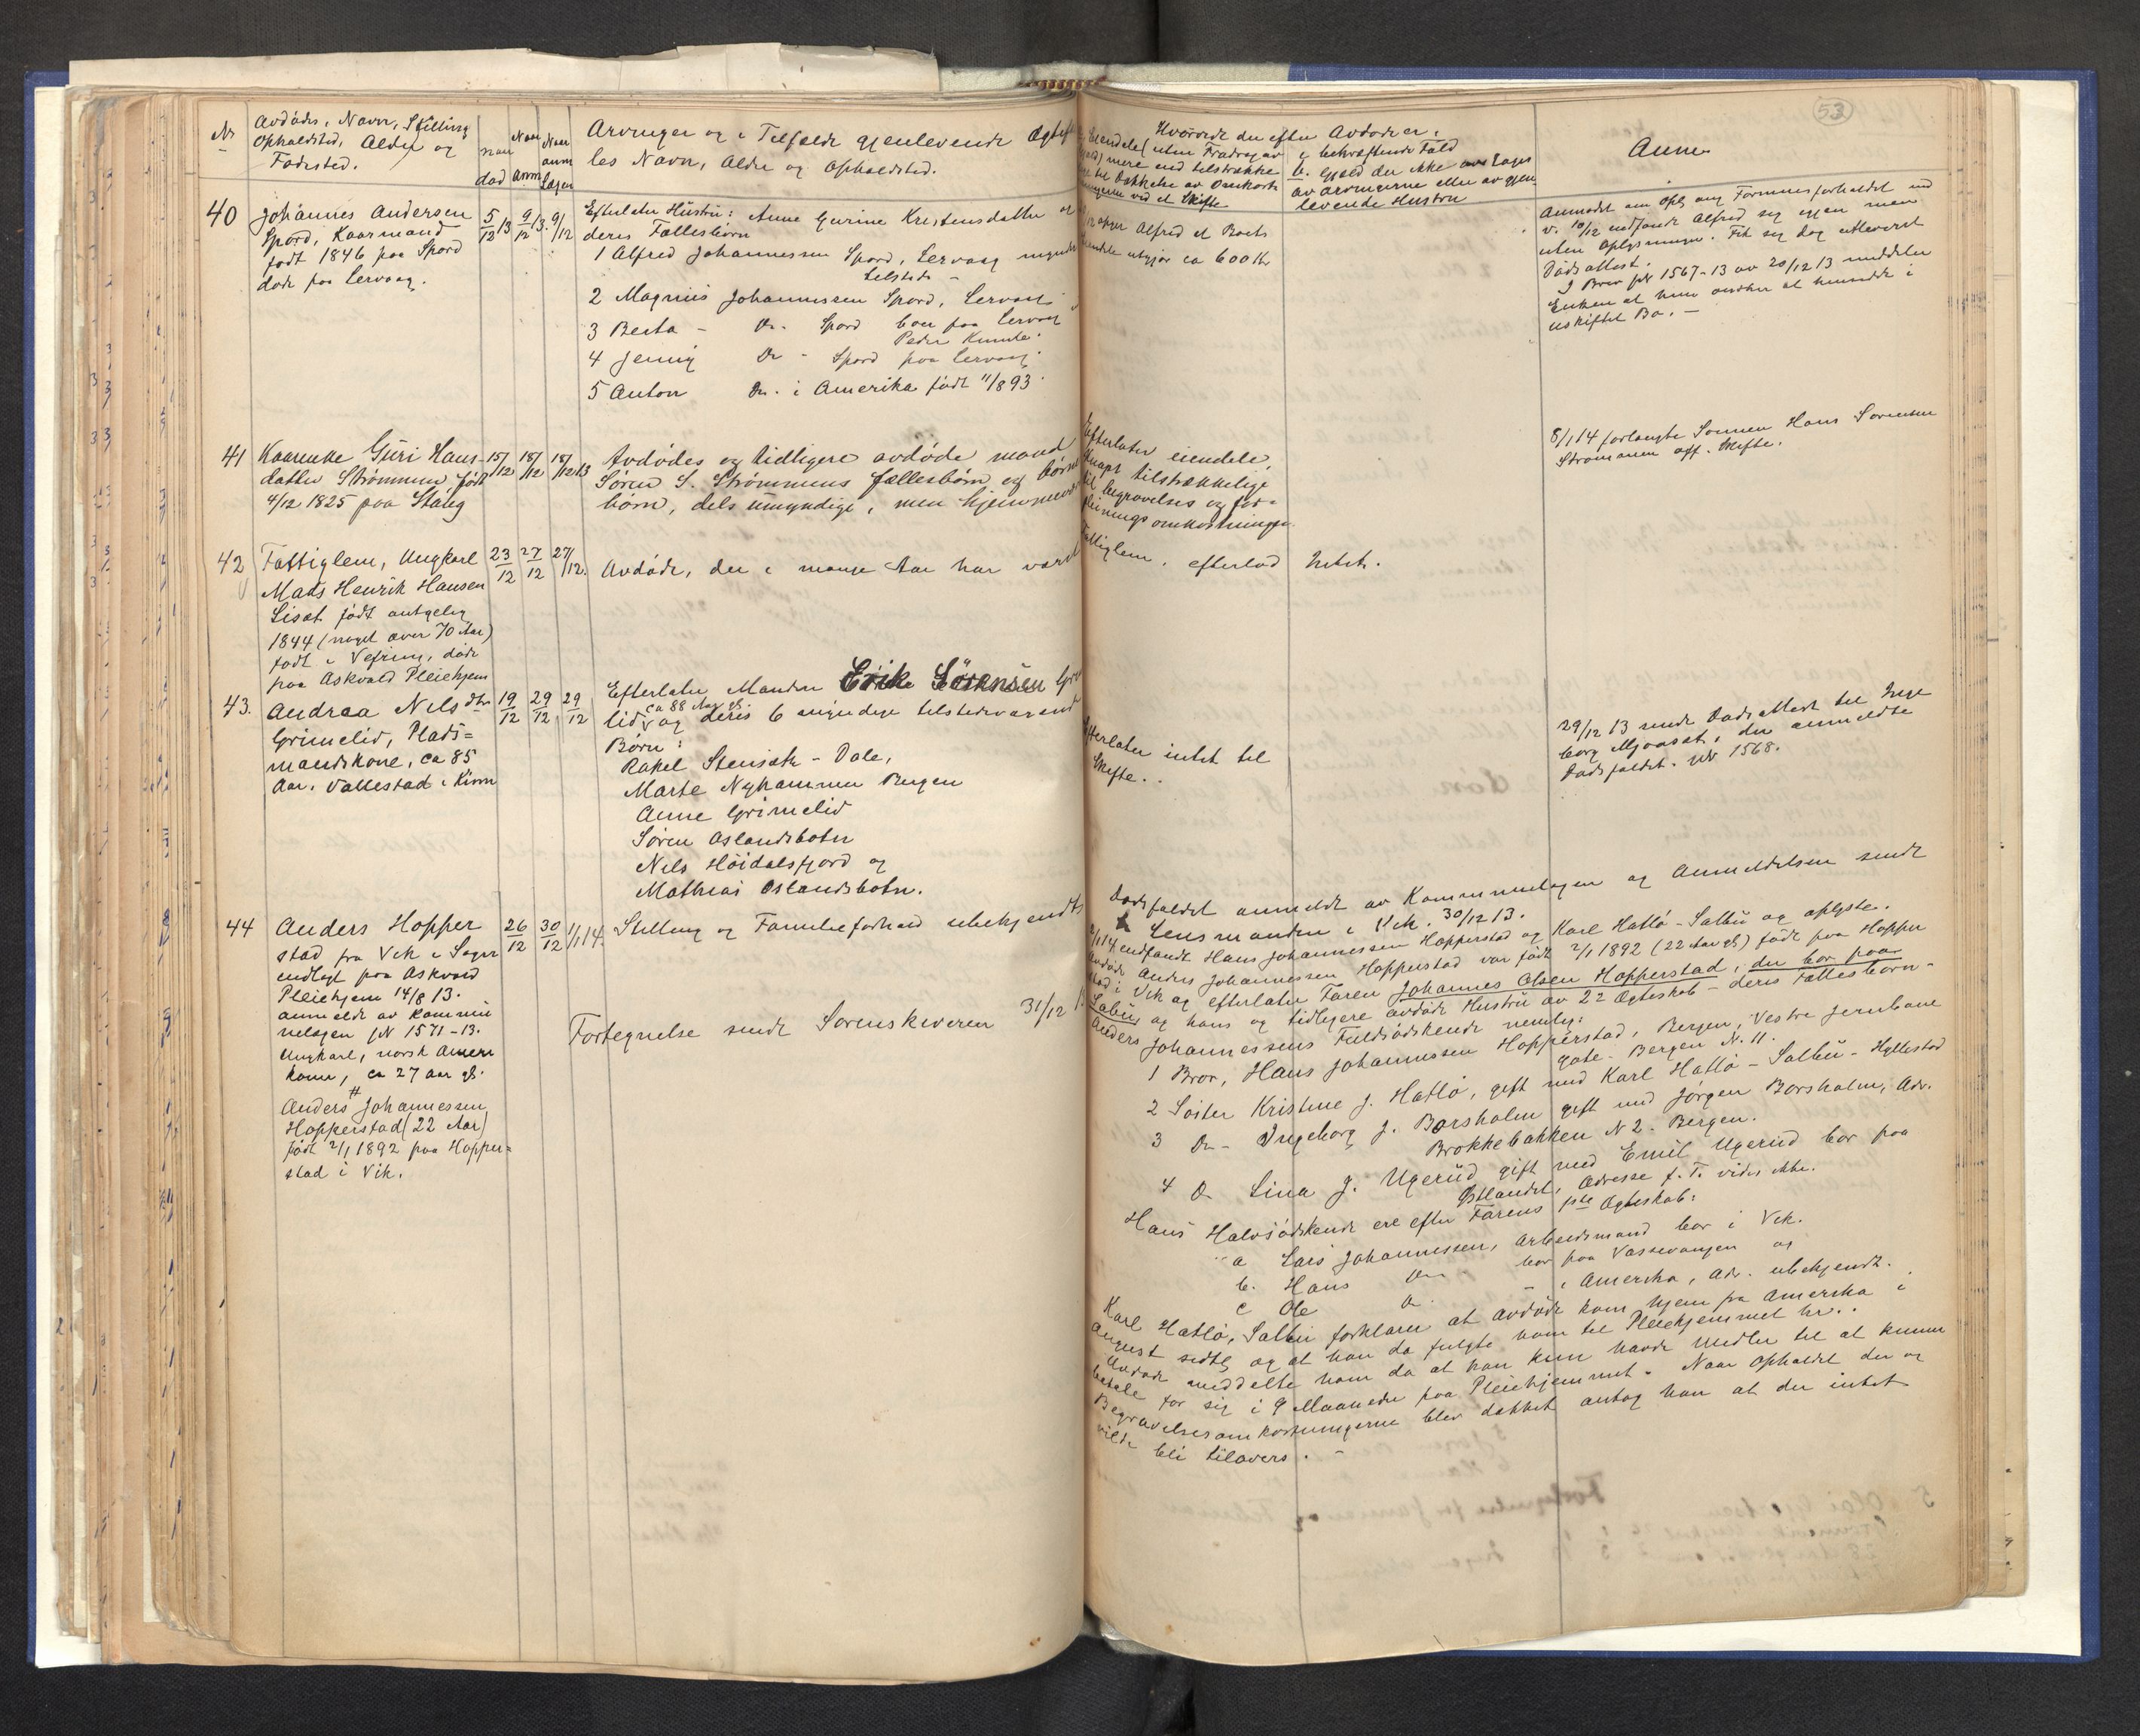 53
No
Avdødes, Navn, Stilling
Opholdsted, Alder og
Fødested.
Naar
død
Naar
anm
Naar
anm
Lagen
Arvinger og i Tilfælde gjenlevende Ægtefæl
les Navn, Alder og Opholdsted.
Hvorvidt der efter Avdøde er:
Eiendele (uten Fradrag av
Gjæld) mere end tilstrække
lige til Dækkelse av Omkost
ningerne ved et Skifte
i bekræftende Fald
b. Gjæld der ikke overtages
av arvingerne eller av gjen
levende Hustru
Anm
40
Johannes Andersen
Spord, Kaarmand
født 1846 paa Spord
døde paa Lervaag.
5/12 13
9/12 13.
9/12
Efterlater Hustru: Anne Gurine Kristensdatter og
deres Fællesbørn
1 Alfred Johannessen Spord, Lervaag myndig
tilstede -
2 Magnus Johannessen Spord, Lervaag
3 Berta - Do - Spord bor paa Lervaag
Peder Kumle
4 Jenny Do - Spord paa Lervaag.
5 Anton Do. i Amerika født 11/8 93.
opgir Alfred at Boets
Eiendele utgjør ca 600 Kr
Anmodet om Opl. ang Formuesforholdet ved
v. 10/12 indfandt Alfred sig igjen men
uten Oplysninger. Fik sig dog utleveret
Dødsattest.
I Brev JN 1567-13 av 20/12 13 meddeler
Enken at hun ønsker at hensidde i
uskiftet Bo. -
41
Kaarenke Guri Hans-
datter Strømmen, født
4/12 1825 paa Stang
15/12
18/12
18/12 13
Avdødes og tidligere avdøde mand
Søren S. Strømmens fællesbørn og børne
børn, dels umyndige, men hjemme
Efterlater eiendele,
knapt tilstrækkelige
til begravelses og for-
pleiningsomkostninger.
8/1 14 forlangte Sønnen Hans Sørensen
Strømmen off. Skifte.
42
Fattiglem, Ungkarl
Mads Henrik Hansen
Liset født antgelig
1844 (noget over 70 Aar)
født i Vefring, døde
paa Askvold Pleiehjem
23/12
27/12
27/12.
Avdøde, der i mange Aar har været
Fattiglem, efterlod Intet.
43.
Andrea Nilsdtr
Grimelid, Plads=
mandskone, ca 85
Aar. Vallestad i Kinn
19/12
29/12
29/12
Efterlater Manden Erik Sørensen Gri
ca 88 Aar gl.
lid og deres 6 myndige tilstedeværende
Børn:
Rakel Stensæth - Dale,
Marte Nyhammer Bergen
Anne Grimelid
Søren Oslandsbotn
Nils Høidalsfjord og
Mathias Oslandsbotn.
Efterlater intet til
Skifte..
29/12 13 sendt Dødsattest til Inge
borg Mjaaset, der anmeldte
Dødsfaldet. JN 1568.
44
Anders Hopper
stad fra Vik i Sogn
indlagt paa Askvold
Pleiehjem 14/8 13.
anmeldt av Kommu
nelægen JN 1571-13.
Ungkarl, norsk Ameri
kaner, ca 27 aar gl.
#
Anders Johannessen
Hopperstad (22 Aar)
født 2/1 1892 paa Hopper=
stad i Vik.
26/12
30/12
1/1 14.
Stilling og Familieforhold ubekjendt
Fortegnelse sendt Sorenskriveren 31/12 13
Dødsfaldet anmeldt av Kommunelægen og Anmeldelsen sendt
Lensmanden i Vik. 30/12 13.
2/1 14 indfandt Hans Johannessen Hopperstad og Karl Hatlø - Salbu og oplyste.
Avdøde Anders Johannessen Hopperstad var født 2/1 1892 (22 Aar gl) født paa Hopper
stad i Vik og efterlater Faren Johannes Olsen Hopperstad, der bor paa
Salbu, og hans og tidligere avdøde Hustru av 2det Ægteskab - deres Fællesbørn -
Anders Johannessens Fuldsødskende nemlig:
1 Bror, Hans Johannessen Hopperstad, Bergen, Vestre Jernbane
gate. Bergen N. 11.
2 Søster Kristine J. Hatlø, gift med Karl Hatlø - Salbu - Hyllestad
3 Do - Ingeborg J. Borsholm gift med Jørgen Borsholm, Adr.
Brokkebakken N 2. Bergen.
4 Do Lina J. Ugerud gift med Emil Ugerud bor paa
Østlandet, Adresse f. T. vides ikke.
Hans Halvsødskende ere efter Farens 1ste Ægteskab:
a Lars Johannessen, arbeidsmand bor i Vik.
b. Hans Do - bor paa Vossevangen og
c Ole Do. - i Amerika, adr. ubekjendt.
Karl Hatlø, Salbu forklarer at avdøde kom hjem fra Amerika i
August sidstl. og at han da fulgte ham til Pleiehjemmet her..
Avdøde meddelte ham da at han kun havde Midler til at kunne
betale for sig i 9 Maaneder paa Pleiehjemmet. Naar Opholdet der og
Begravelsesomkostningerne blev dækket antog han at der intet
vilde bli tilovers. -